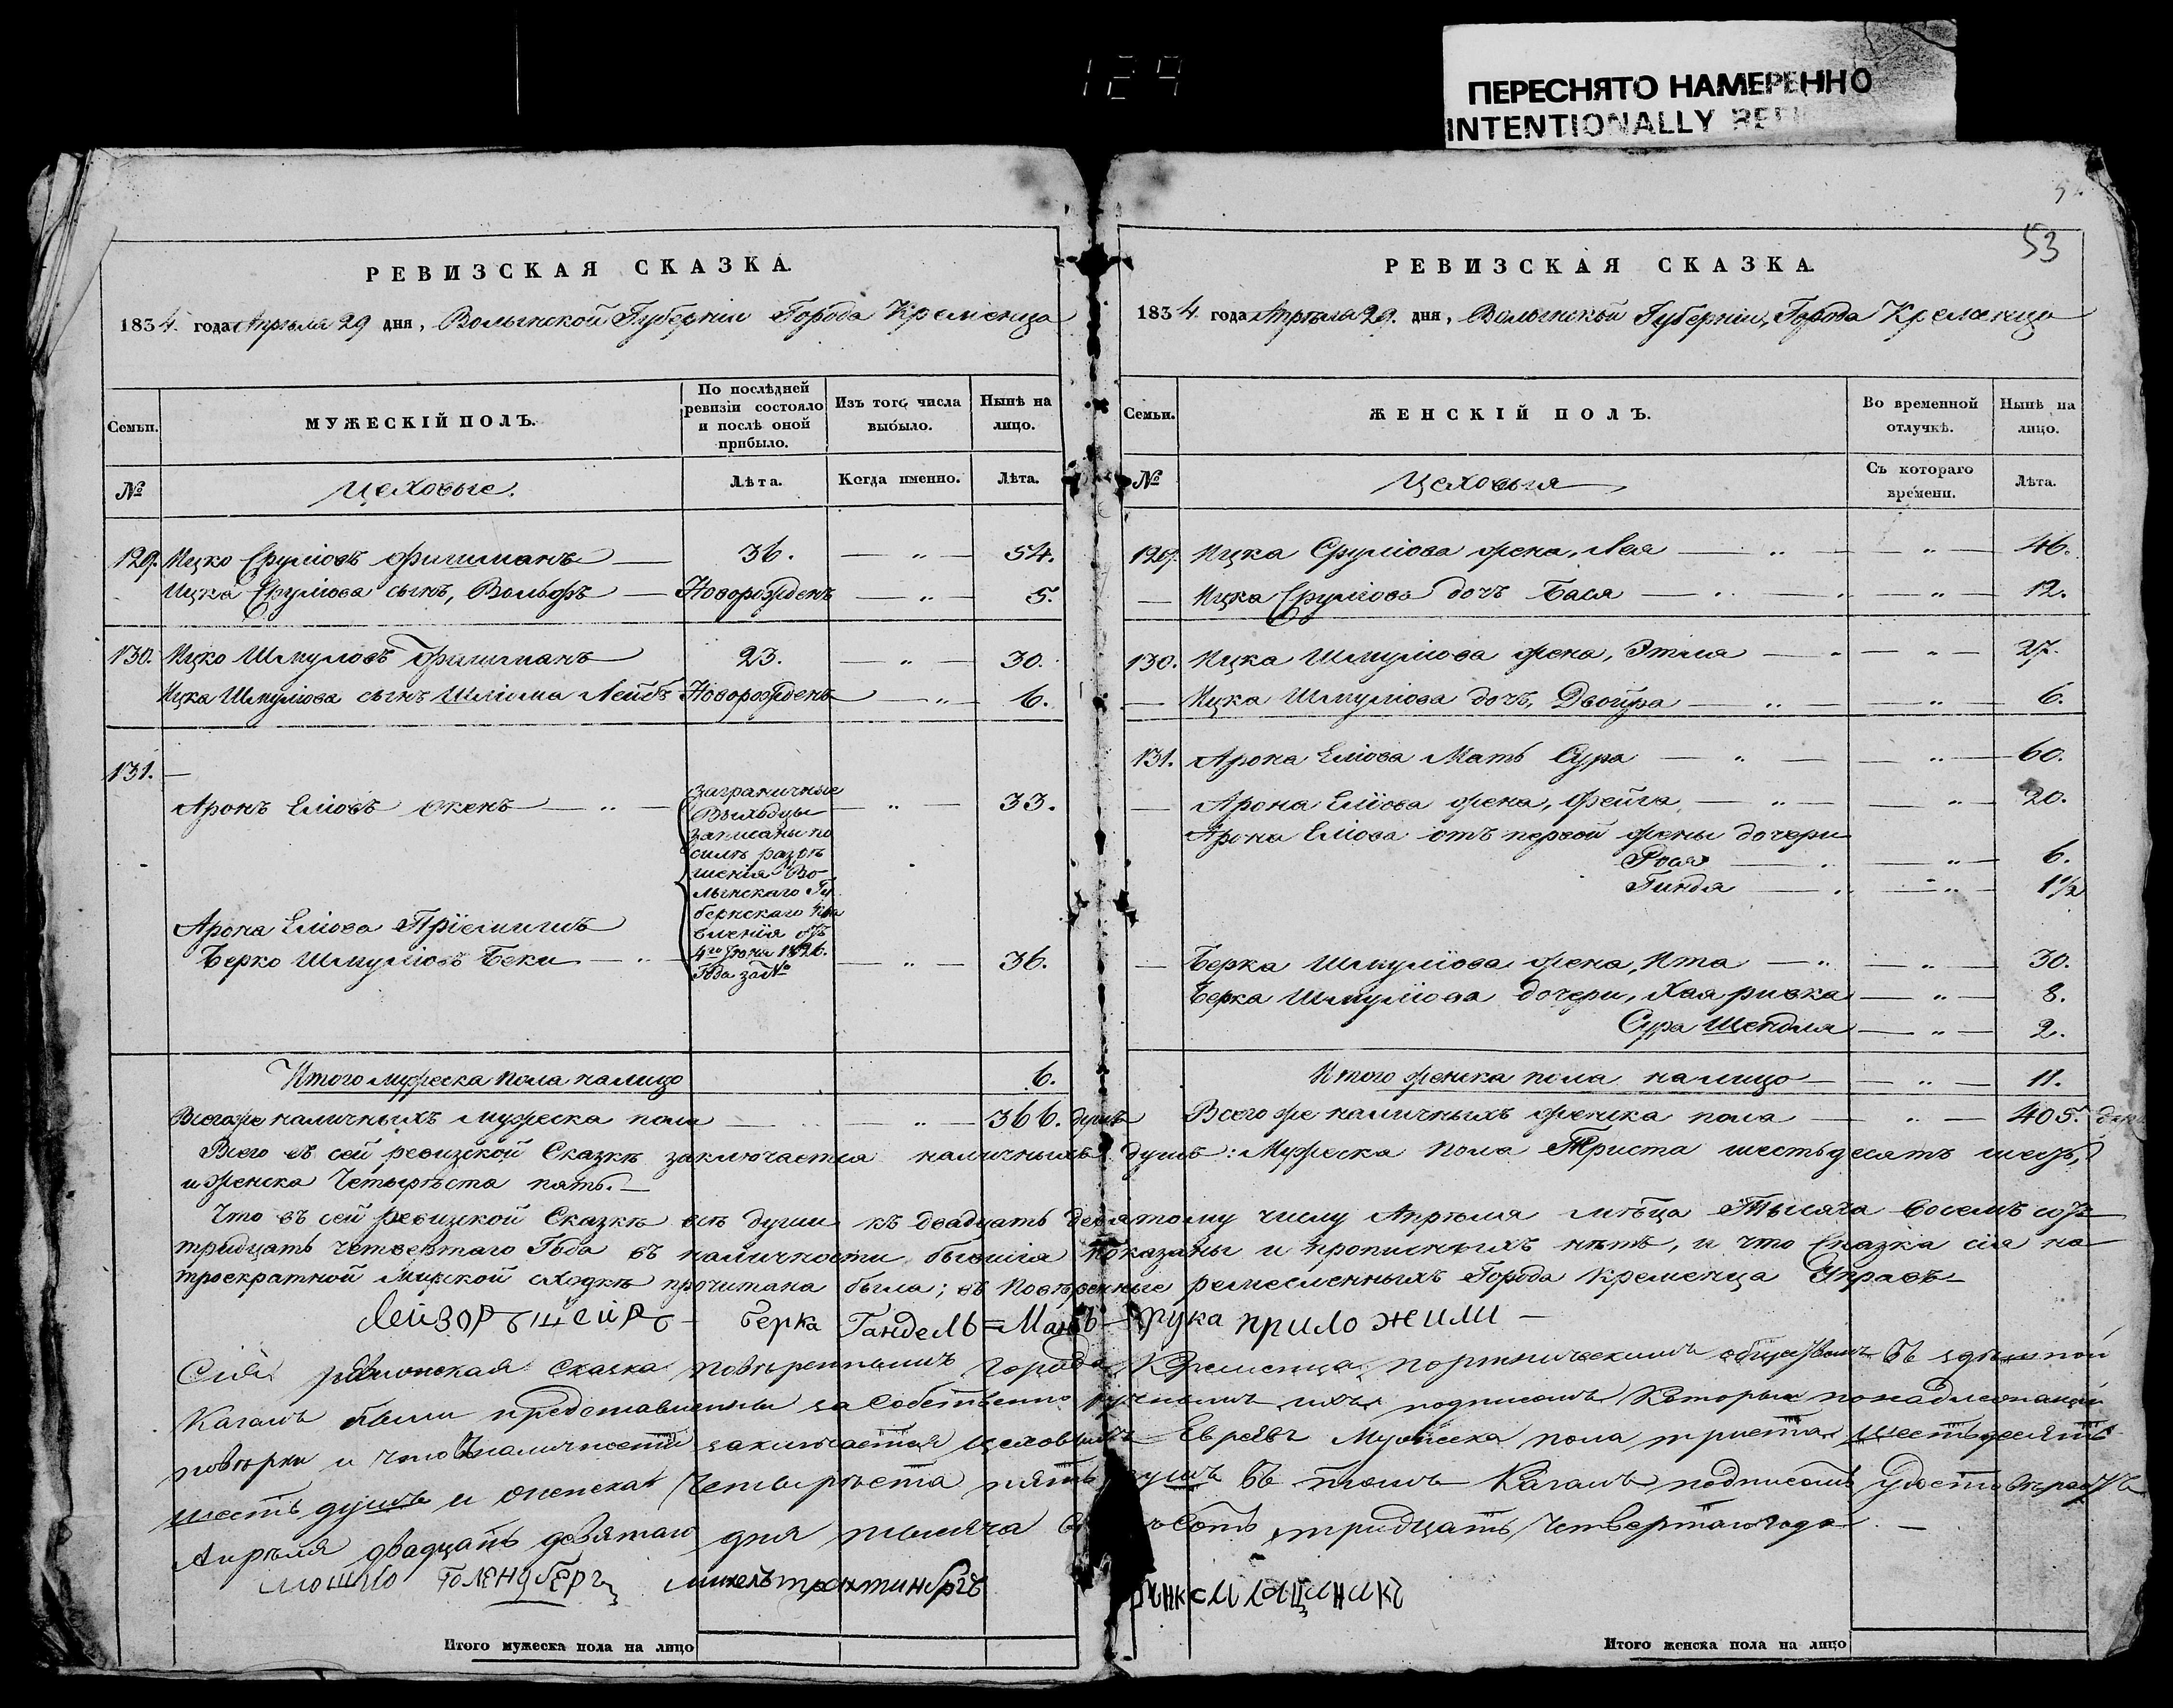 129
ПЕРЕСНЯТО НАМЕРЕННО
INTENTIONALLY
53
РЕВИЗСКАЯ СКАЗКА.
1834 года Апрѣля 29 дня, Волынской Губерніи Города Кременца
Семьи.
МУЖЕСКІЙ ПОЛЪ.
По послѣдней ревизіи состояло и послѣ оной прибыло.
Изъ того числа выбыло.
Нынѣ на лицо.
№
Цеховые.
Лѣта.
Когда именно.
Лѣта.
129. Ицко Сруліовъ Фишманъ — 36. — „ — 54.
Ицка Сруліова сынъ, Вольфъ — Новорожденъ — „ — 5.
130. Ицко Шмуловъ Фишманъ 23. — „ — 30.
Ицка Шмуліова сынъ Шліома Лейбъ Новорожденъ — „ — 6.
131. —
Аронъ Еліовъ Окенъ — „ — — „ — 33.
заграничные
Выходцы
записаны по
силѣ разрѣ
шенія Во-
лынскаго Гу
бернскаго Пра
вленія отъ
4го Іюня 1826.
Года за №
Арона Еліова Пріемышъ
Берко Шмуліовъ Беки — „ — — „ — 36.
Итого мужеска пола налицо 6.
Всего же наличныхъ мужеска пола — „ — 366. душъ
РЕВИЗСКАЯ СКАЗКА.
1834 года Апрѣля 29. дня, Волынской Губерніи, Города Кременца
Семьи.
ЖЕНСКІЙ ПОЛЪ.
Во временной отлучкѣ.
Нынѣ на лицо.
№
Цеховыя
Съ котораго времени.
Лѣта.
129. Ицка Сруліова жена, Лея — „ — — „ — 46.
— Ицка Сруліова дочь Бася — „ — — „ — 12.
130. Ицка Шмуліова жена, Этля — „ — — „ — 27.
— Ицка Шмуліова дочь, Двойра — „ — — „ — 6.
131. Арона Еліова Мать Сура — „ — — „ — 60.
— Арона Еліова жена, Фейга — „ — — „ — 20.
Арона Еліова отъ первой жены дочери
Роая — „ — 6.
Гинда — „ — 1½
— Берка Шмуліова жена, Ита — „ — „ — 30.
Берка Шмуліова дочери, Хая ривка — „ — 8.
Сура Шендля — „ — 2.
Итого женска пола налицо — — „ — 11.
Всего же наличныхъ женска пола — „ — 405.
Всего въ сей ревизской Сказкѣ заключается наличныхъ душъ: Мужеска пола Триста шестьдесятъ шесть,
и женска Четыреста пять. —
Что въ сей ревизской Сказкѣ всѣ души къ двадцать девятому числу Апрѣля мѣсяца Тысяча восемъ сотъ
тридцать четвертаго Года въ наличности бывшія показаны и прописныхъ нѣтъ, и что Сказка сія на
троекратной Мирской сходкѣ прочитана была; въ Повѣренные ремесленныхъ Города Кременца Управъ —
Лейзоръ Цейръ — Берка Гандель=Манъ — рука приложили —
Сія ревизская сказка повѣреннымъ города Кременца портническимъ обществомъ въ здѣшной
Кагалъ были представлены за собственно ручнымъ ихъ подписомъ Которыи понадлежащей
повѣрки и что въ наличности заключается цеховыхъ Евреевъ Мужеска пола триста шестьдесятъ
шесть душъ и женска Четыреста пять душъ въ томъ Кагалъ подписомъ удостовѣряетъ
Апрѣля двадцать девятаго дня тысяча сотъ тридцать четвертаго года —
мошко Голендберг